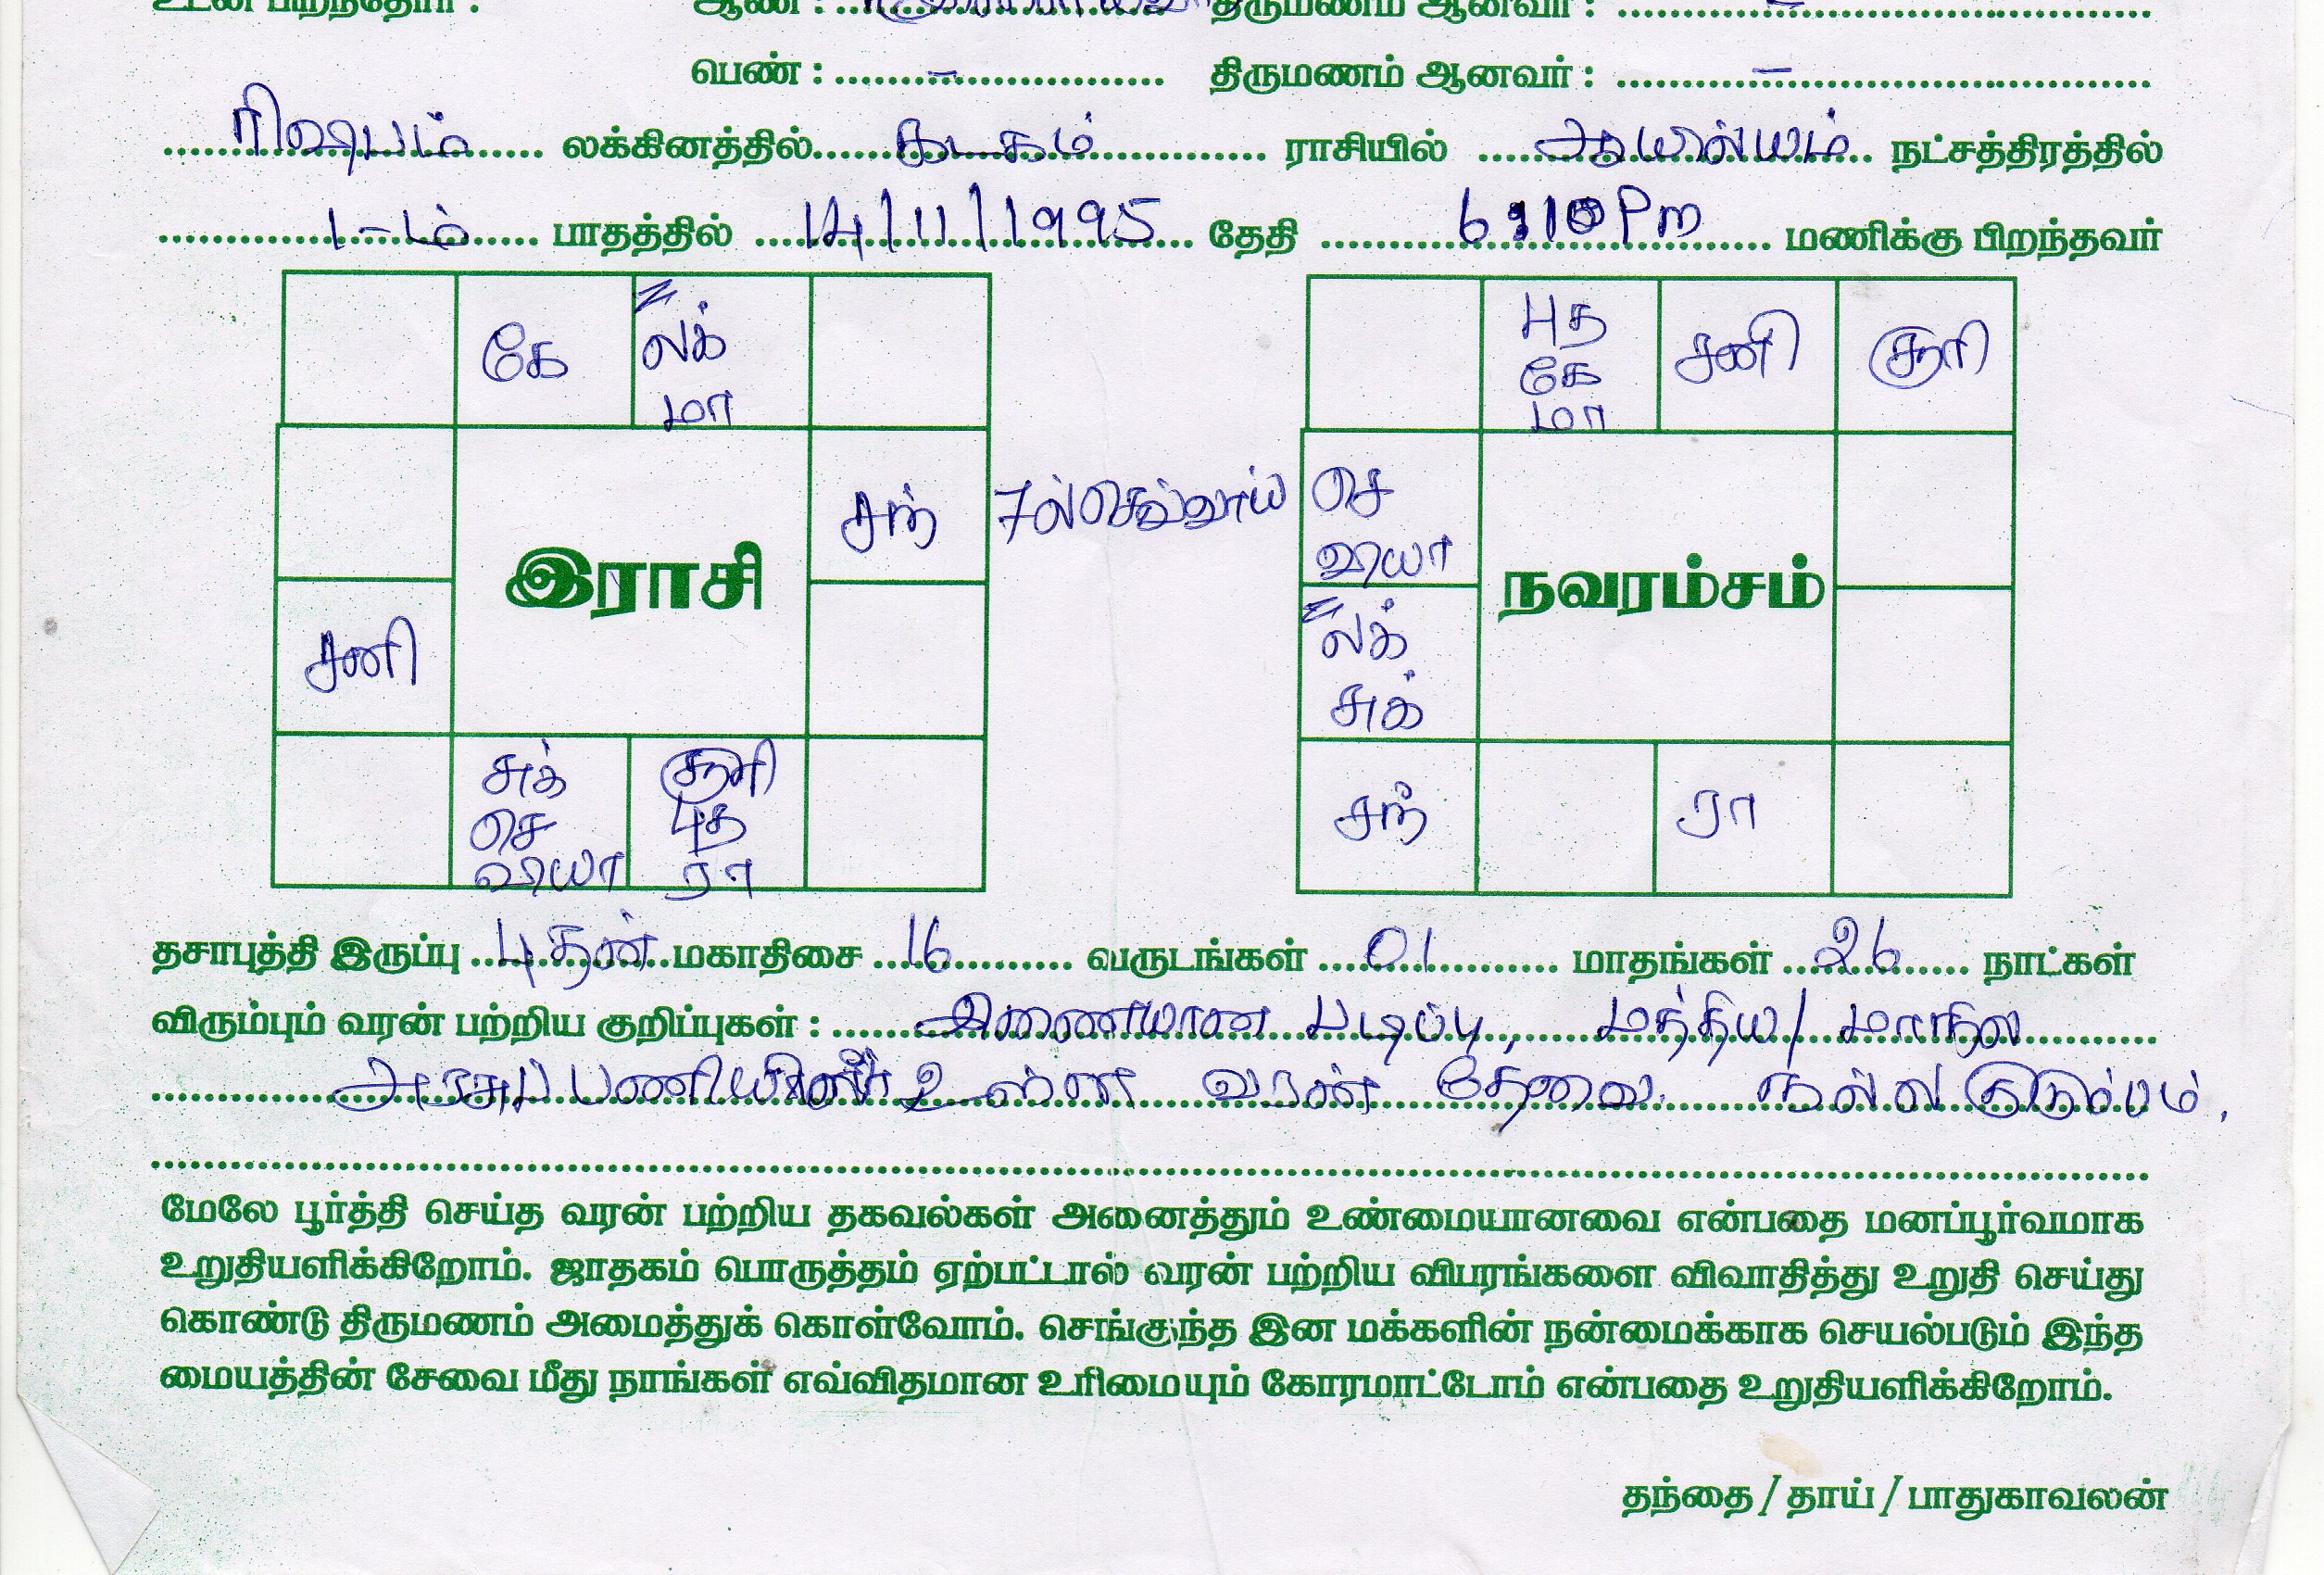 உடன் பிறந்தோர் : ஆண் : திருமணம் ஆனவர் : –
பெண் : – திருமணம் ஆனவர் : –
ரிஷபம் லக்கினத்தில் கடகம் ராசியில் ஆயில்யம் நட்சத்திரத்தில்
1-ம் பாதத்தில் 14/11/1995 தேதி 6:10 Pm மணிக்கு பிறந்தவர்
கே
லக்
மா
சந்
சனி
இராசி
சுக்
செ
வியா
சூரி
புத
ரா
7ல் செவ்வாய்
புத
கே
மா
சனி
சூரி
செ
வியா
லக்
சுக்
நவரம்சம்
சந்
ரா
தசாபுத்தி இருப்பு புதன் மகாதிசை 16 வருடங்கள் 01 மாதங்கள் 26 நாட்கள்
விரும்பும் வரன் பற்றிய குறிப்புகள் : இணையான படிப்பு, மத்திய / மாநில
அரசுப் பணியில் உள்ள வரன் தேவை. நல்ல குடும்பம்.
மேலே பூர்த்தி செய்த வரன் பற்றிய தகவல்கள் அனைத்தும் உண்மையானவை என்பதை மனப்பூர்வமாக
உறுதியளிக்கிறோம். ஜாதகம் பொருத்தம் ஏற்பட்டால் வரன் பற்றிய விபரங்களை விவாதித்து உறுதி செய்து
கொண்டு திருமணம் அமைத்துக் கொள்வோம். செங்குந்த இன மக்களின் நன்மைக்காக செயல்படும் இந்த
மையத்தின் சேவை மீது நாங்கள் எவ்விதமான உரிமையும் கோரமாட்டோம் என்பதை உறுதியளிக்கிறோம்.
தந்தை / தாய் / பாதுகாவலன்